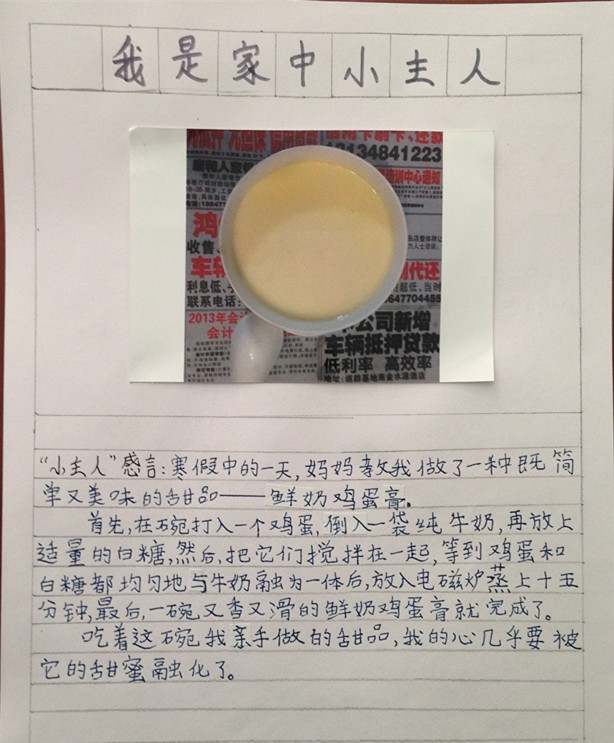 我是家中小主人
13484 1223
训中心通知
鸿
收售、
车辆
时代还
利息低、
超低,当时
联系电话:
647704455
2013年会
会计
公司新增
车辆抵押贷款
低利率 高效率
“小主人”感言:寒假中的一天,妈妈教我做了一种既简
单又美味的甜品——鲜奶鸡蛋膏。
首先,在碗打入一个鸡蛋,倒入一袋纯牛奶,再放上
适量的白糖,然后,把它们搅拌在一起,等到鸡蛋和
白糖都均匀地与牛奶融为一体后,放入电磁炉蒸上十五
分钟,最后,一碗又香又滑的鲜奶鸡蛋膏就完成了。
吃着这碗我亲手做的甜品,我的心几乎要被
它的甜蜜融化了。